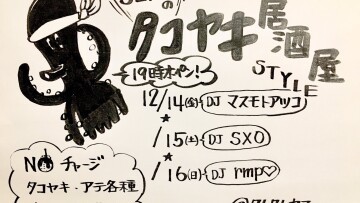 の
タコヤキ居酒屋
STYLE
19時オペン!
12/14(金) DJ マスモトアツコ
★
/15(土) DJ SXO
★
/16(日) DJ rmp♡
NO チャージ
タコヤキ・アテ各種